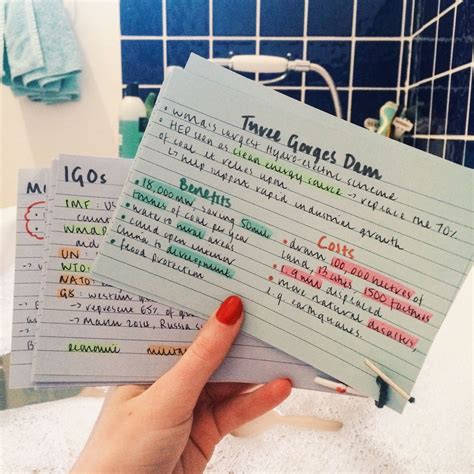 Three Gorges Dam
• World's largest hydro-electric scheme
• HEP seen as clean energy source → replace the 70%
of coal it relies upon
↳ help support rapid industrial growth
Benefits
• 18,000MW saving 50mil
tonnes of coal per year
• water to rural areas
• could open interior
China to development
• flood protection
Costs
• drown 100,000 hectres of
land, 13 cities, 1500 factories
• 1.9mil displaced
• more natural disasters,
e.g. earthquakes.
IGOs
IMF :
count
World
UN :
WTO:
NATO:
G8 : western
→ represent 65% of
→ March 2014, Russia
economic
M